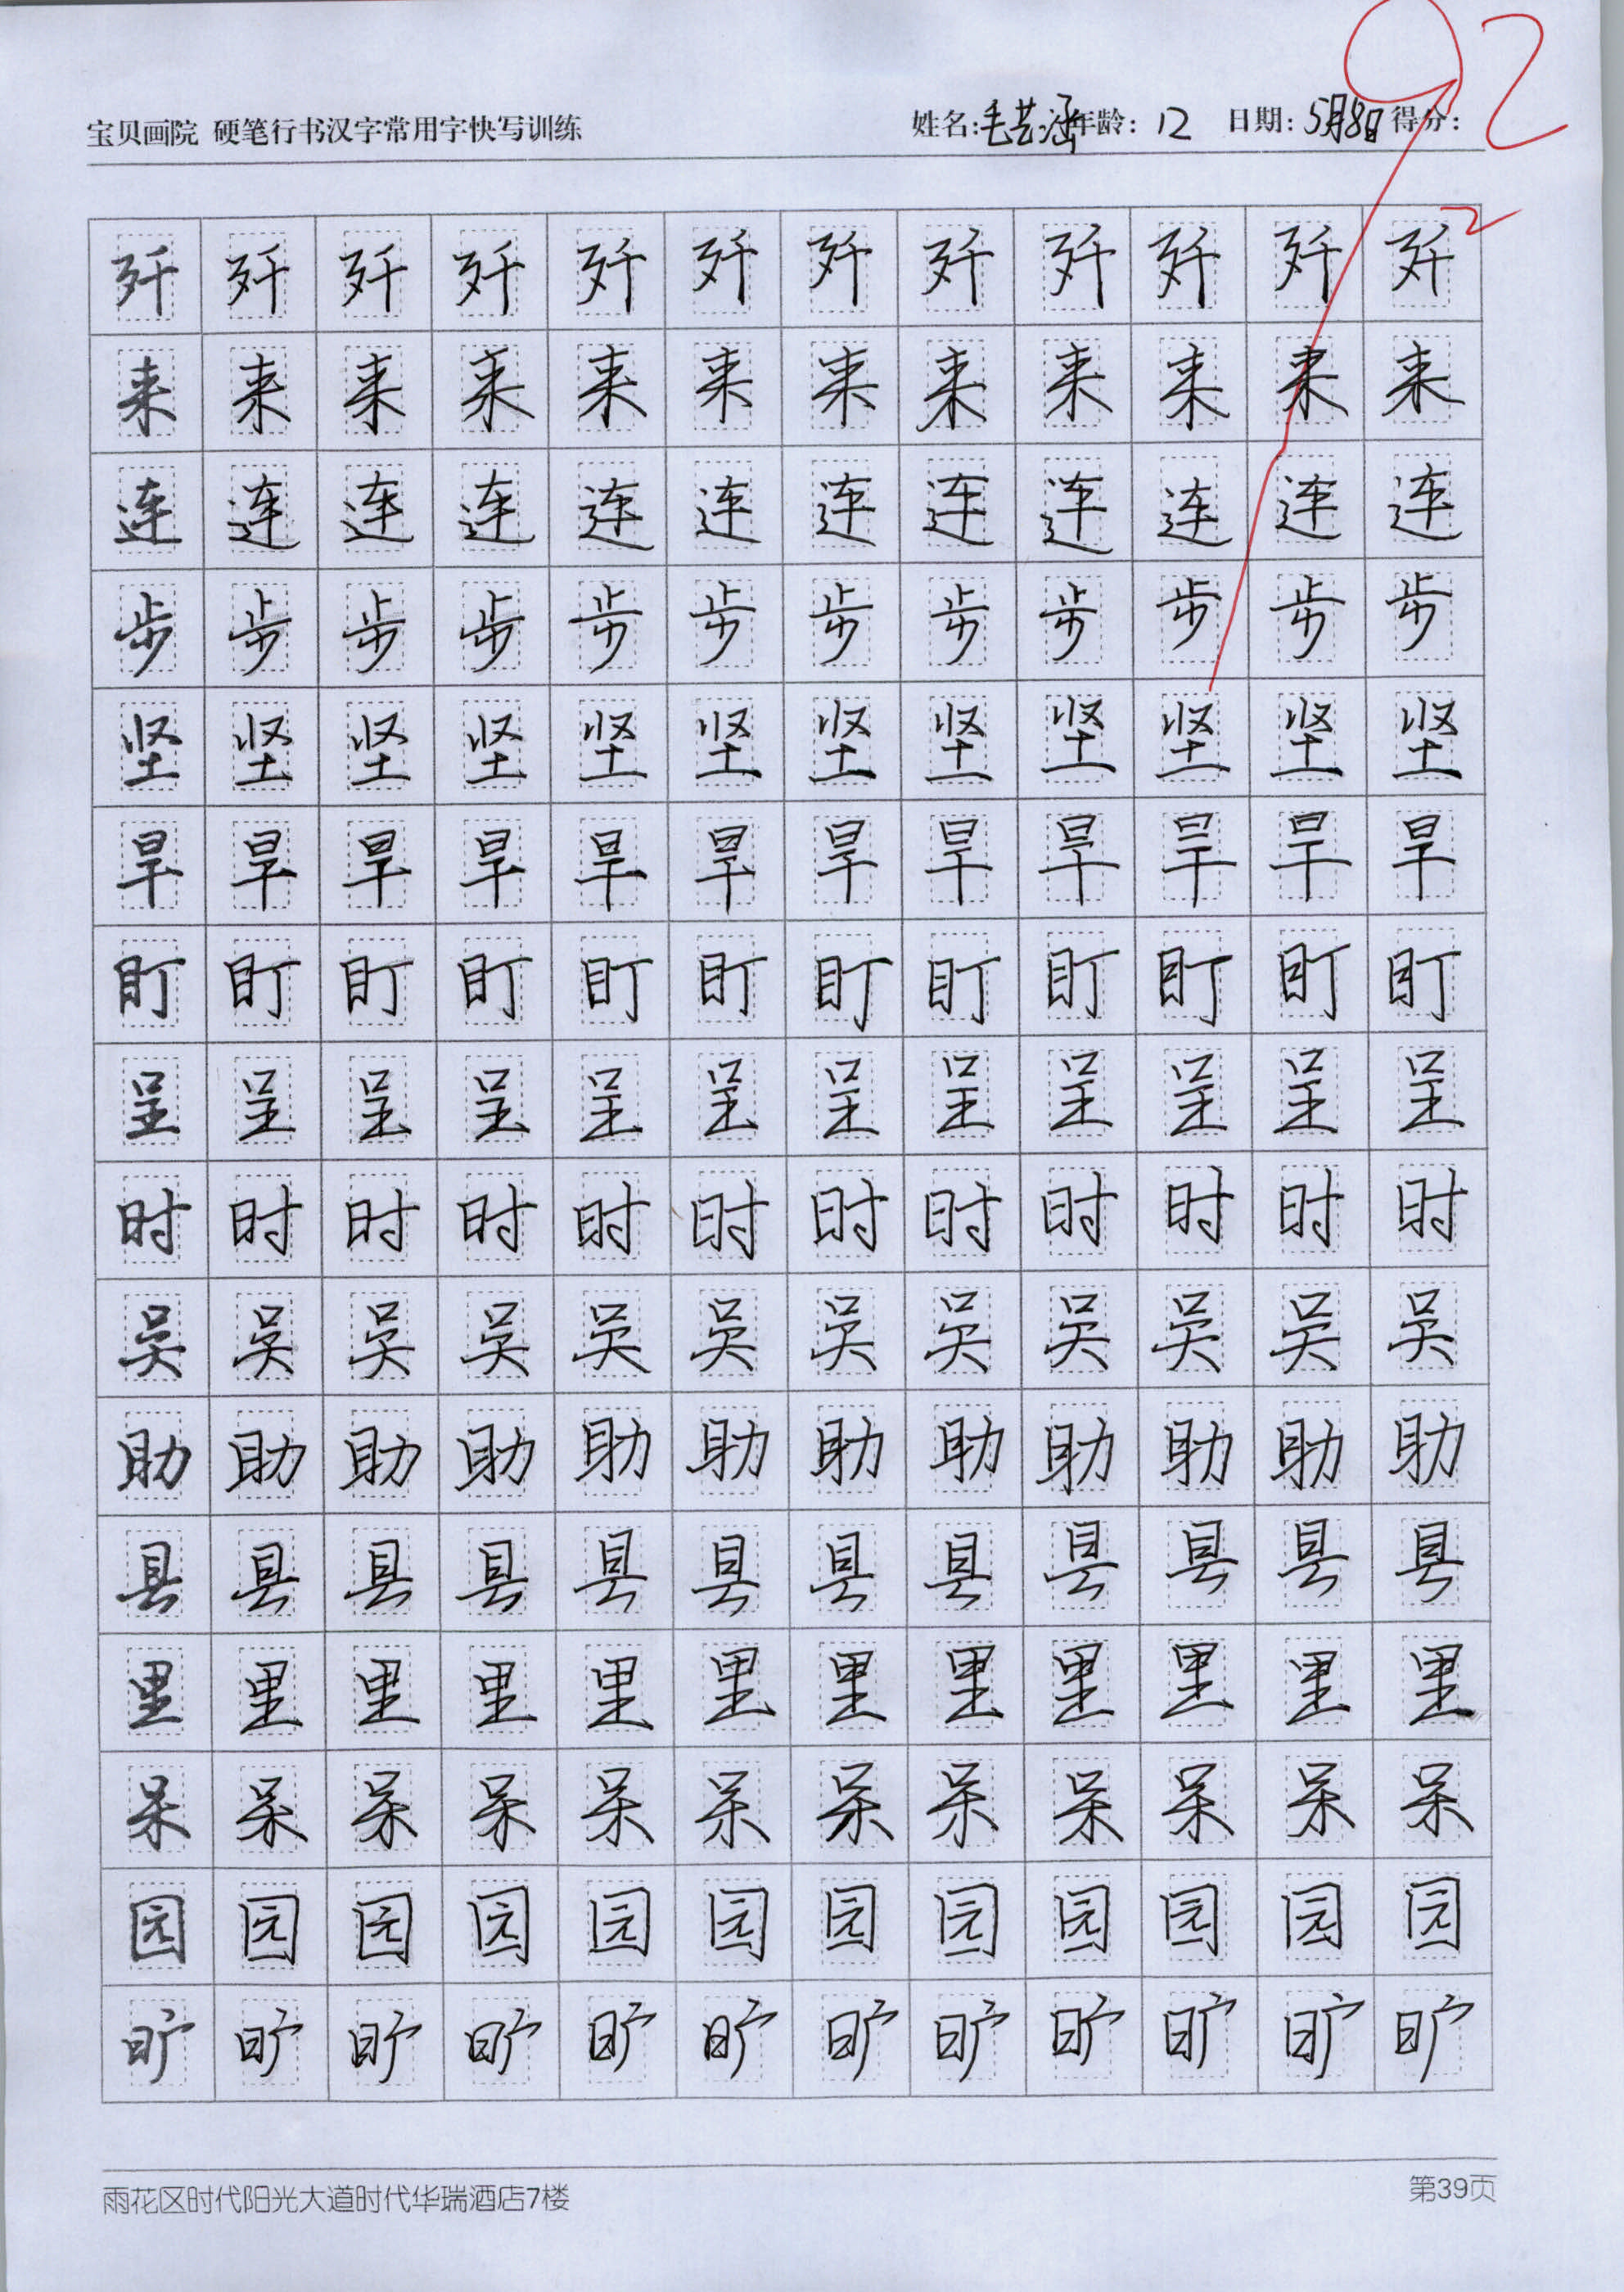 宝贝画院 硬笔行书汉字常用字快写训练 姓名:毛艺涵 年龄:12 日期:5月8日 得分:92
歼 歼 歼 歼 歼 歼 歼 歼 歼 歼 歼 歼
来 来 来 来 来 来 来 来 来 来 来 来
连 连 连 连 连 连 连 连 连 连 连 连
步 步 步 步 步 步 步 步 步 步 步 步
坚 坚 坚 坚 坚 坚 坚 坚 坚 坚 坚 坚
旱 旱 旱 旱 旱 旱 旱 旱 旱 旱 旱 旱
盯 盯 盯 盯 盯 盯 盯 盯 盯 盯 盯 盯
呈 呈 呈 呈 呈 呈 呈 呈 呈 呈 呈 呈
时 时 时 时 时 时 时 时 时 时 时 时
吴 吴 吴 吴 吴 吴 吴 吴 吴 吴 吴 吴
助 助 助 助 助 助 助 助 助 助 助 助
县 县 县 县 县 县 县 县 县 县 县 县
里 里 里 里 里 里 里 里 里 里 里 里
呆 呆 呆 呆 呆 呆 呆 呆 呆 呆 呆 呆
园 园 园 园 园 园 园 园 园 园 园 园
旷 旷 旷 旷 旷 旷 旷 旷 旷 旷 旷 旷
雨花区时代阳光大道时代华瑞酒店7楼 第39页